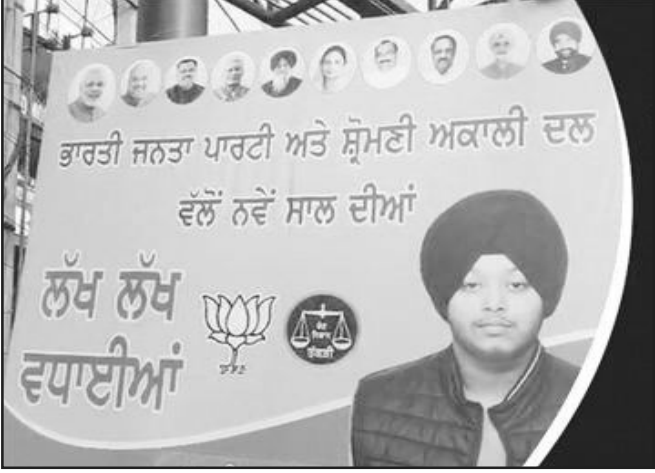 ਭਾਰਤੀ ਜਨਤਾ ਪਾਰਟੀ ਅਤੇ ਸ਼੍ਰੋਮਣੀ ਅਕਾਲੀ ਦਲ
ਵੱਲੋਂ ਨਵੇਂ ਸਾਲ ਦੀਆਂ
ਲੱਖ ਲੱਖ
ਵਧਾਈਆਂ
ਤੱਕੜੀ